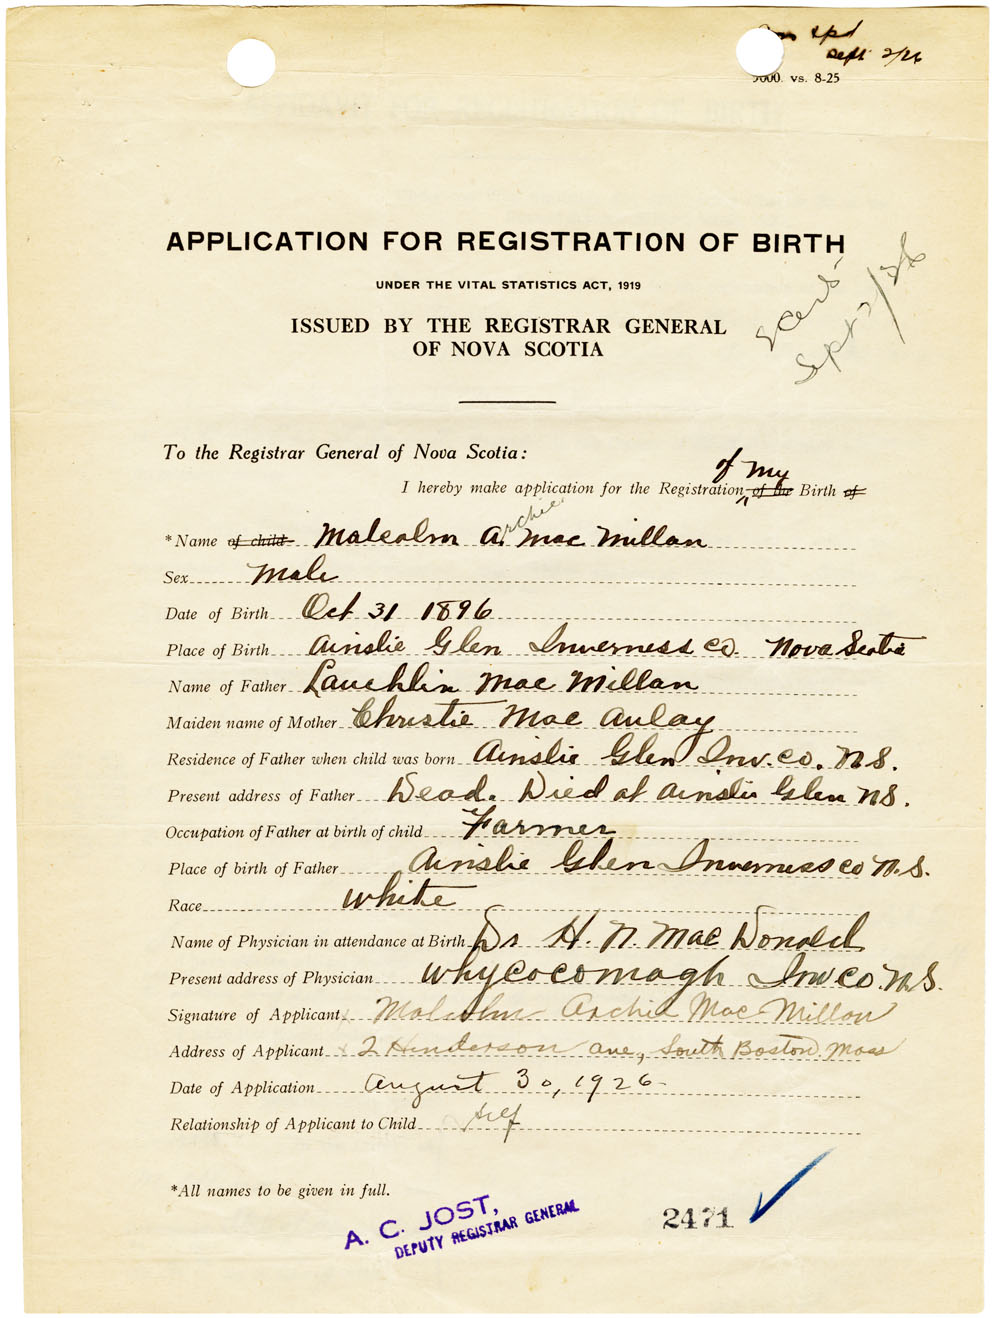 spd
Sept 2/26
5000. vs. 8-25
APPLICATION FOR REGISTRATION OF BIRTH
UNDER THE VITAL STATISTICS ACT, 1919
ISSUED BY THE REGISTRAR GENERAL
OF NOVA SCOTIA
Sept 2/26
To the Registrar General of Nova Scotia:
of My
I hereby make application for the Registration of the Birth of
*Name of child Malcolm A. Archie Mac Millan
Sex Male
Date of Birth Oct 31 1896
Place of Birth Ainslie Glen Inverness Co. Nova Scotia
Name of Father Lauchlin Mac Millan
Maiden name of Mother Christie Mac Aulay
Residence of Father when child was born Ainslie Glen Inv. Co. N.S.
Present address of Father Dead. Died at Ainslie Glen NS.
Occupation of Father at birth of child Farmer
Place of birth of Father Ainslie Glen Inverness Co N.S.
Race White
Name of Physician in attendance at Birth Dr H. N. Mac Donald
Present address of Physician Whycocomagh Inv Co. N.S.
Signature of Applicant x Malcolm Archie Mac Millan
Address of Applicant x 2 Henderson ave, South Boston. Mass
Date of Application August 30, 1926
Relationship of Applicant to Child Self
*All names to be given in full.
A. C. JOST,
DEPUTY REGISTRAR GENERAL
2471